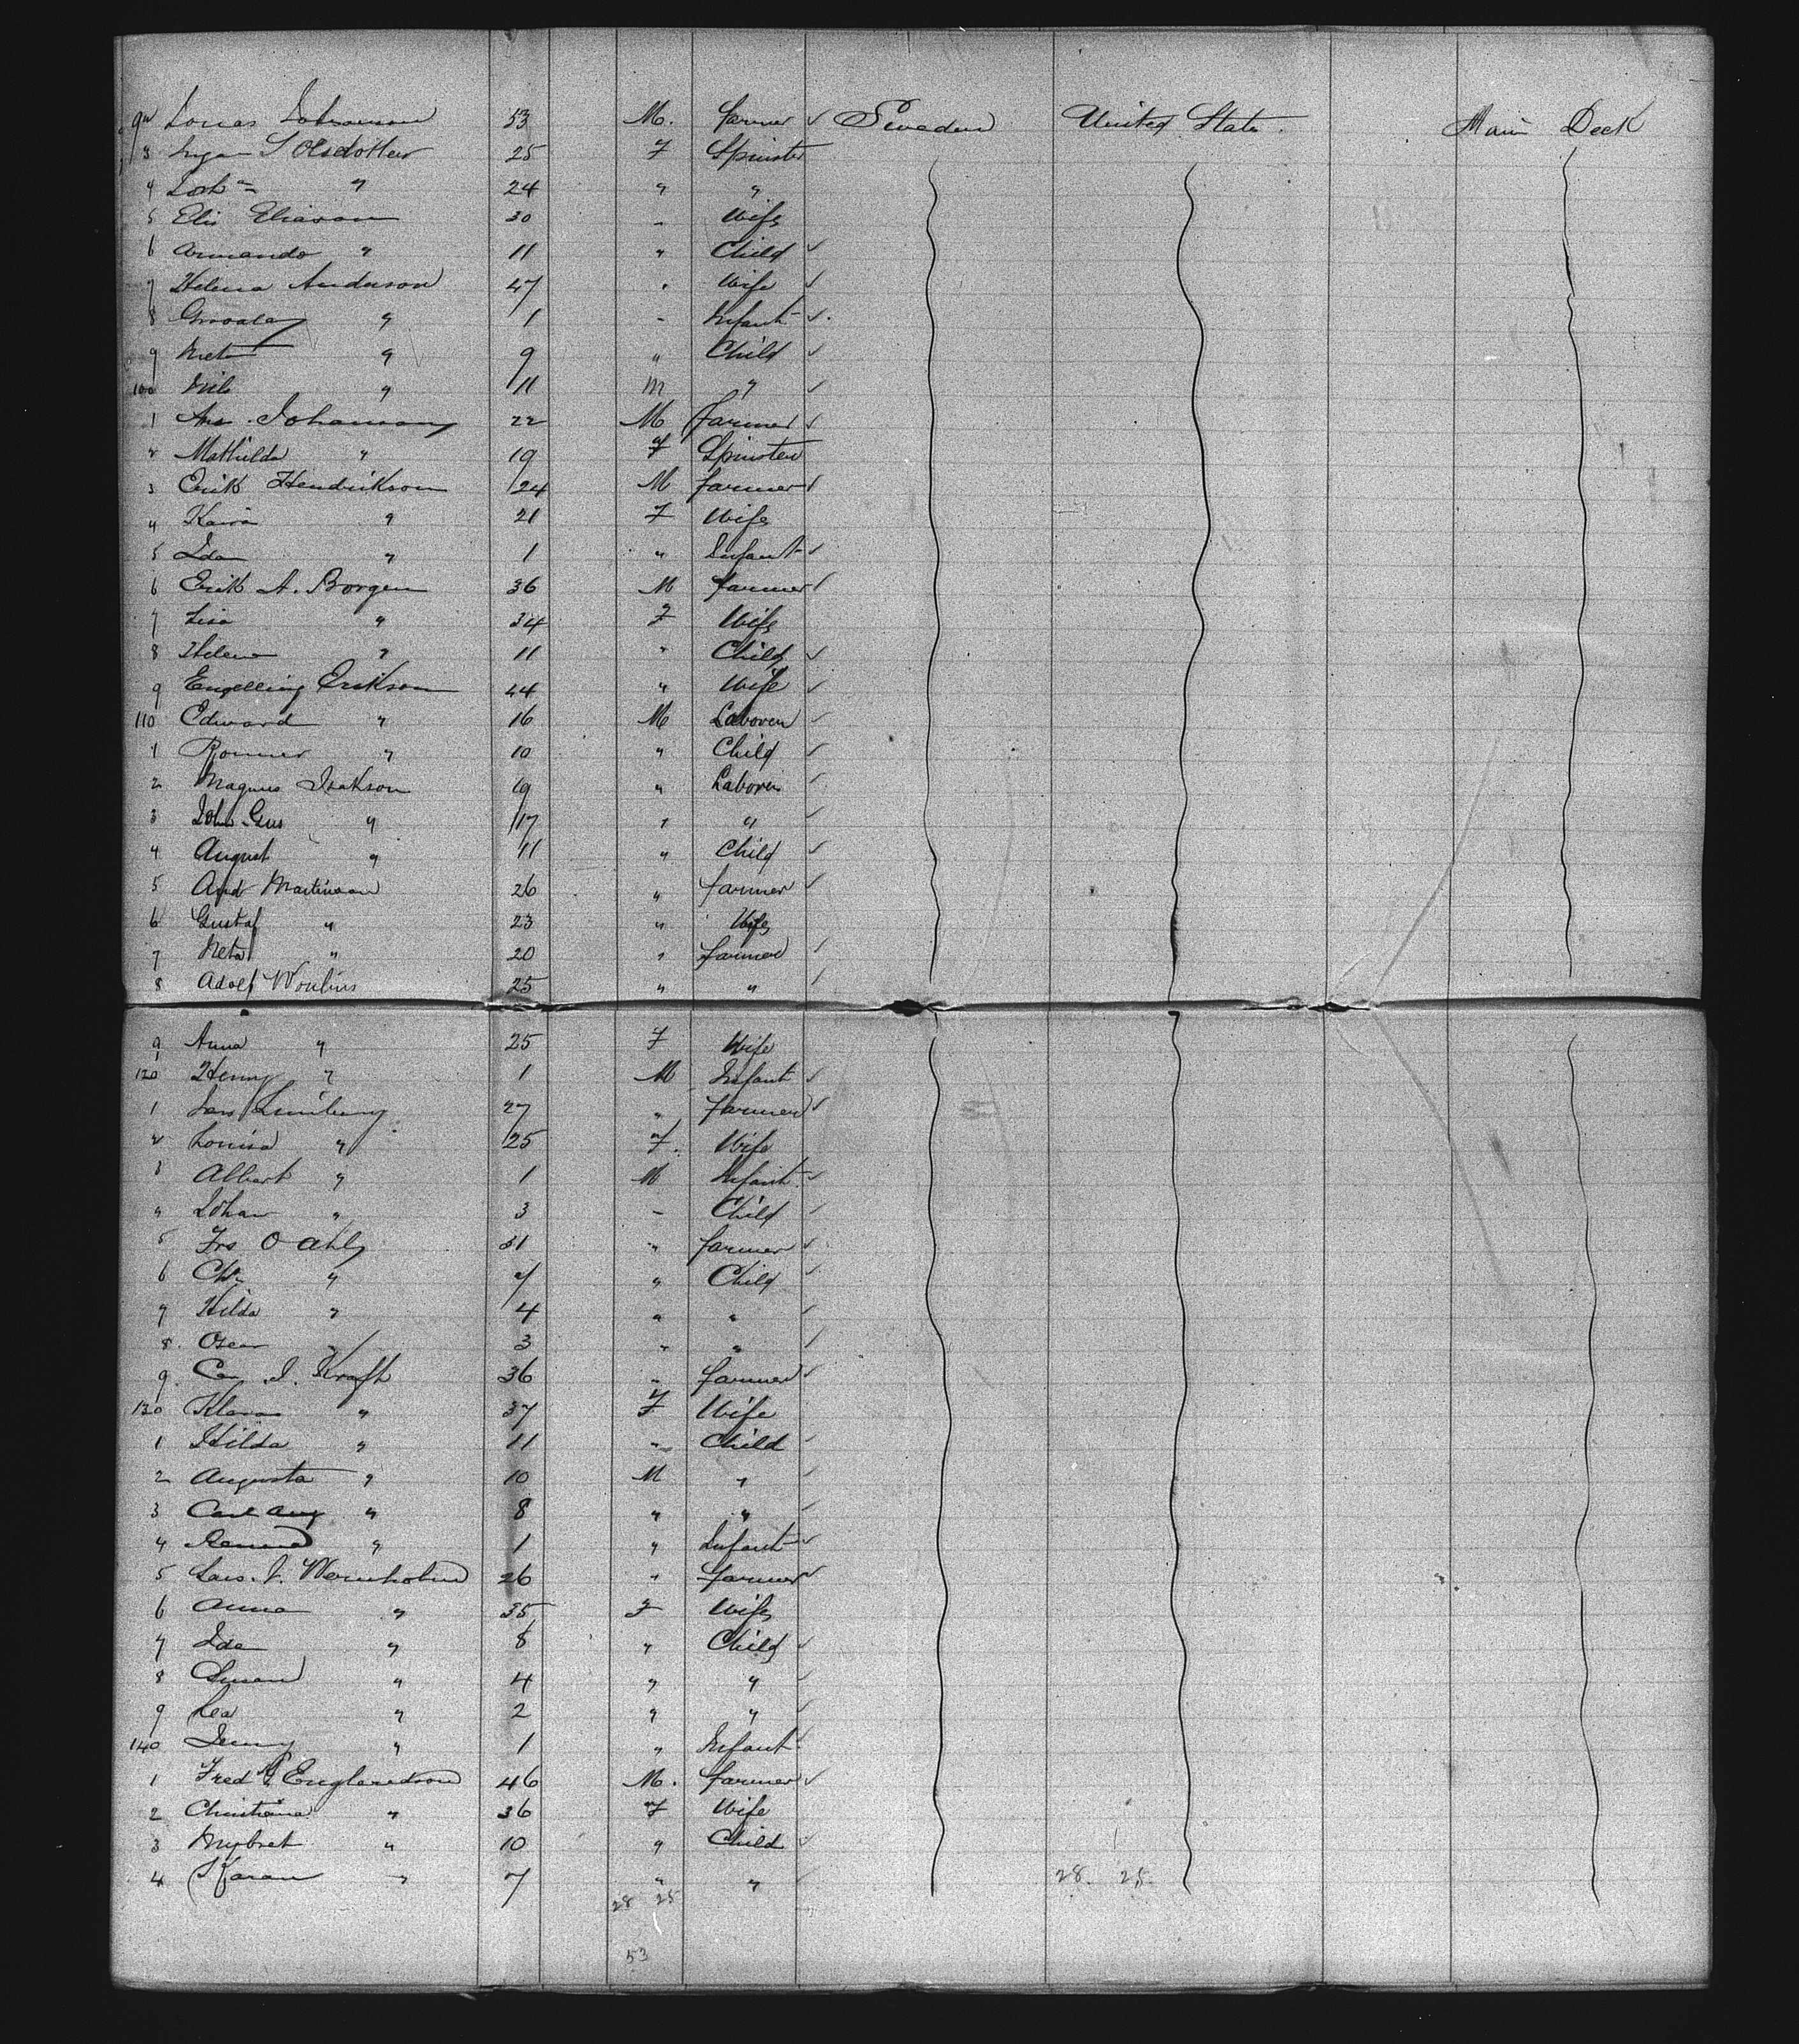 92 Jonas Johanson 53 M. farmer ✓ Sweden United State. Main Deck
3 Inga S Olsdotter 25 F Spinster
4 " 24 " "
5 Elis Eliason 30 " Wife
6 Armando " 11 " Child ✓
7 Helena Anderson 47 " Wife ✓
8 " 1 " Infant ✓
9 Neta " 9 " Child ✓
100 Nils " 11 M " ✓
1 Johanson 22 M farmer ✓
2 Mathilda " 19 F Spinster
3 Erik Hendrikson 24 M farmer ✓
4 Kaisa " 21 F Wife
5 Ida " 1 " Infant ✓
6 Erik A. Borgen 36 M farmer ✓
7 Lisa " 34 F Wife
8 Helena " 11 " Child ✓
9 Engelling Erikson 44 " Wife ✓
110 Edward " 16 M Laborer ✓
1 " 10 " Child ✓
2 Magnus Isakson 19 " Laborer ✓
3 John Gus " 17 " " ✓
4 August " 11 " Child ✓
5 And Martinson 26 " farmer ✓
6 Gustaf " 23 " Wife
7 Neta " 20 " farmer ✓
8 Adolf 25 " " ✓
9 Anna " 25 F Wife
120 Henny " 1 M Infant ✓
1 27 " farmer ✓
2 Lovisa " 25 F. Wife
3 Albert " 1 M Infant ✓
4 Johan " 3 " Child ✓
5 Frs O Ahly 31 " farmer ✓
6 " 7 " Child ✓
7 Hilda " 4 " " ✓
8. Oscar " 3 " " ✓
9. J. Kraft 36 " farmer ✓
130 Klara " 37 F Wife
1 Hilda " 11 " Child ✓
2 Augusta " 10 M " ✓
3 Carl Aug " 8 " " ✓
4 " 1 " Infant ✓
5 Lars. J. Wernholm 26 " farmer ✓
6 Anna " 35 F Wife
7 Ida " 8 " Child ✓
8 " 4 " " ✓
9 Lea " 2 " " ✓
140 Jenny " 1 " Infant ✓
1 Fred G Englaredson 46 M. farmer ✓
2 Christiana " 36 F Wife
3 " 10 " Child ✓
4 " 7 " " ✓ 28. 25.
28 25
53